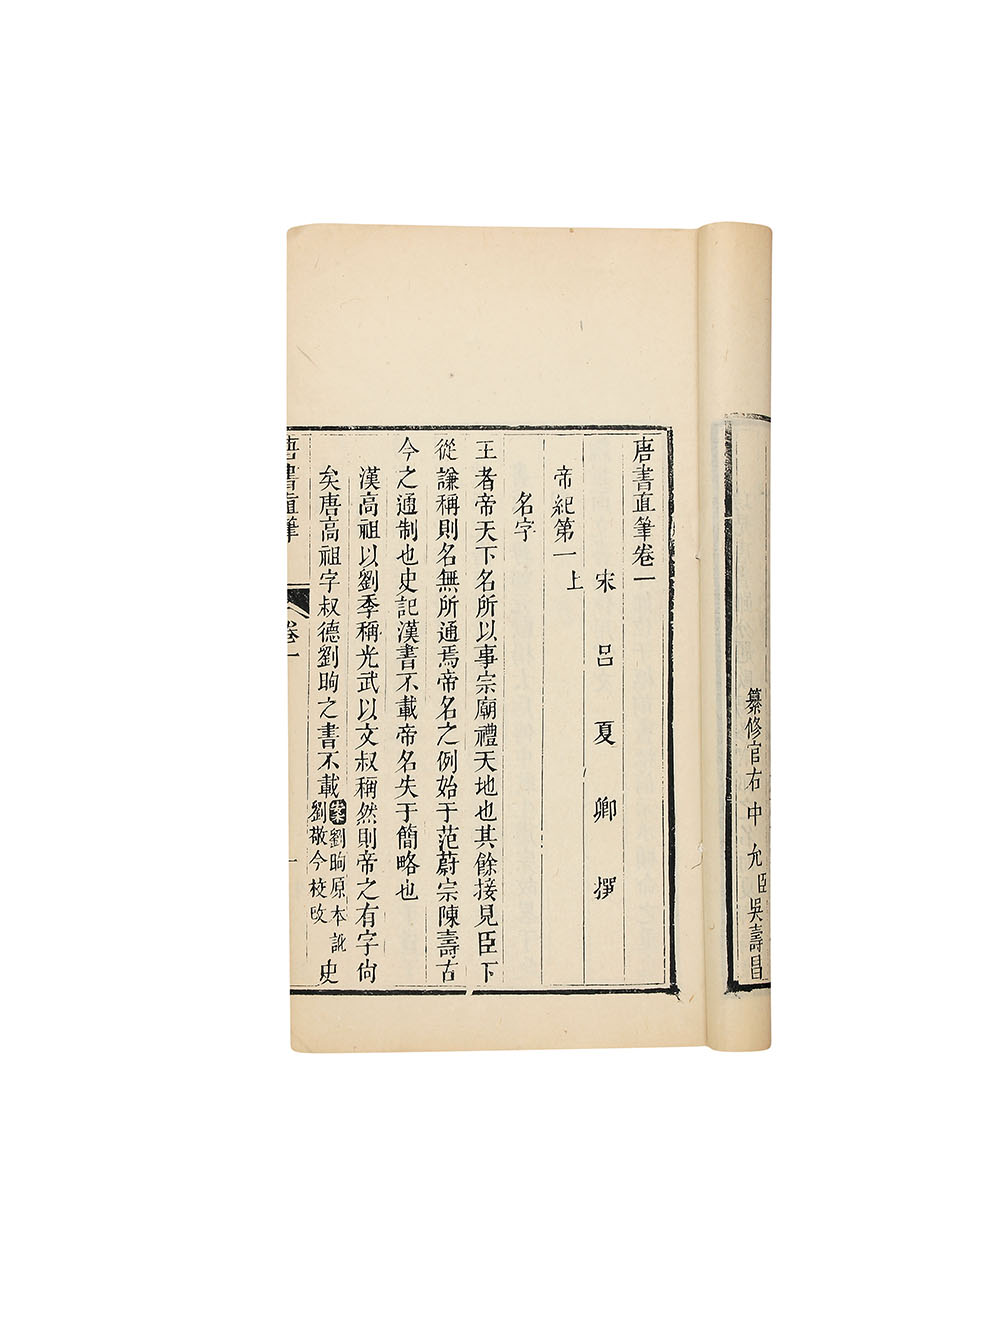 纂修官右中允臣吳壽昌
唐書直筆卷一
宋呂夏卿撰
帝紀第一上
名字
王者帝天下名所以事宗廟禮天地也其餘接見臣下
從謙稱則名無所通焉帝名之例始于范蔚宗陳壽古
今之通制也史記漢書不載帝名失于簡略也
漢高祖以劉季稱光武以文叔稱然則帝之有字尚
矣唐高祖字叔德劉昫之書不載案劉昫原本訛劉敬今校改史
唐書直筆 卷一 一